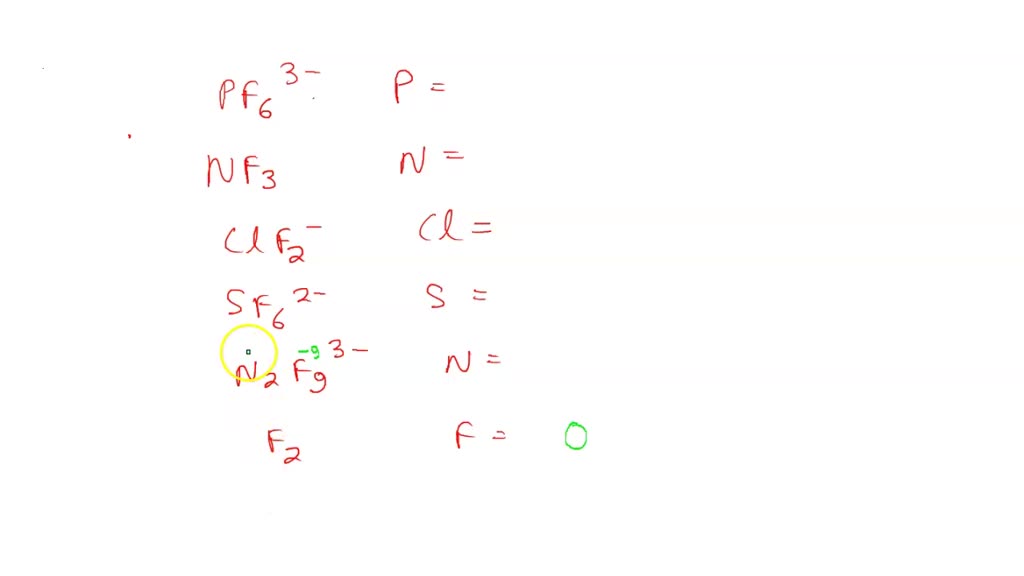 PF₆³⁻ P =
NF₃ N =
ClF₂⁻ Cl =
SF₆²⁻ S =
N₂F₉³⁻ -9 N =
F₂ F = 0